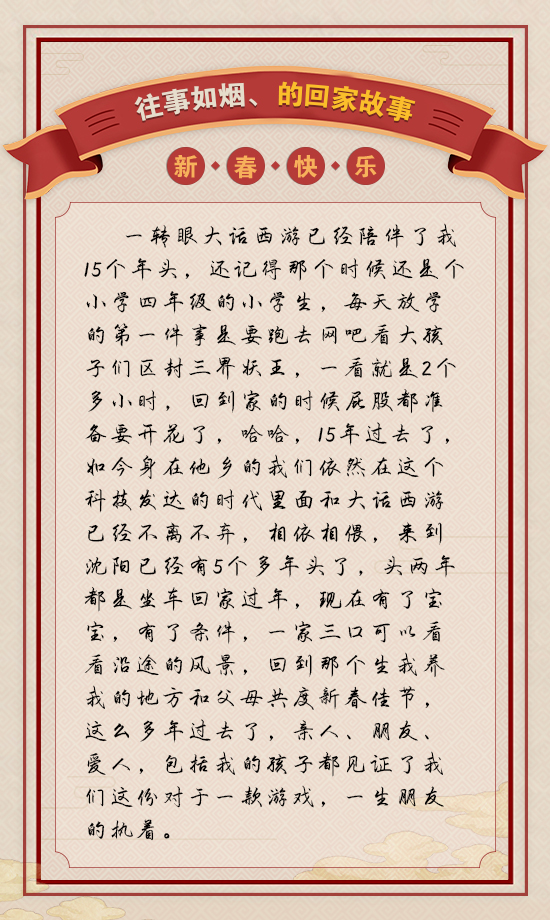 往事如烟、的回家故事
新春快乐
一转眼大话西游已经陪伴了我
15个年头，还记得那个时候还是个
小学四年级的小学生，每天放学
的第一件事是要跑去网吧看大孩
子们区封三界状王，一看就是2个
多小时，回到家的时候屁股都准
备要开花了，哈哈，15年过去了，
如今身在他乡的我们依然在这个
科技发达的时代里面和大话西游
已经不离不弃，相依相偎，来到
沈阳已经有5个多年头了，头两年
都是坐车回家过年，现在有了宝
宝，有了条件，一家三口可以看
看沿途的风景，回到那个生我养
我的地方和父母共度新春佳节，
这么多年过去了，亲人、朋友、
爱人，包括我的孩子都见证了我
们这份对于一款游戏，一生朋友
的执着。